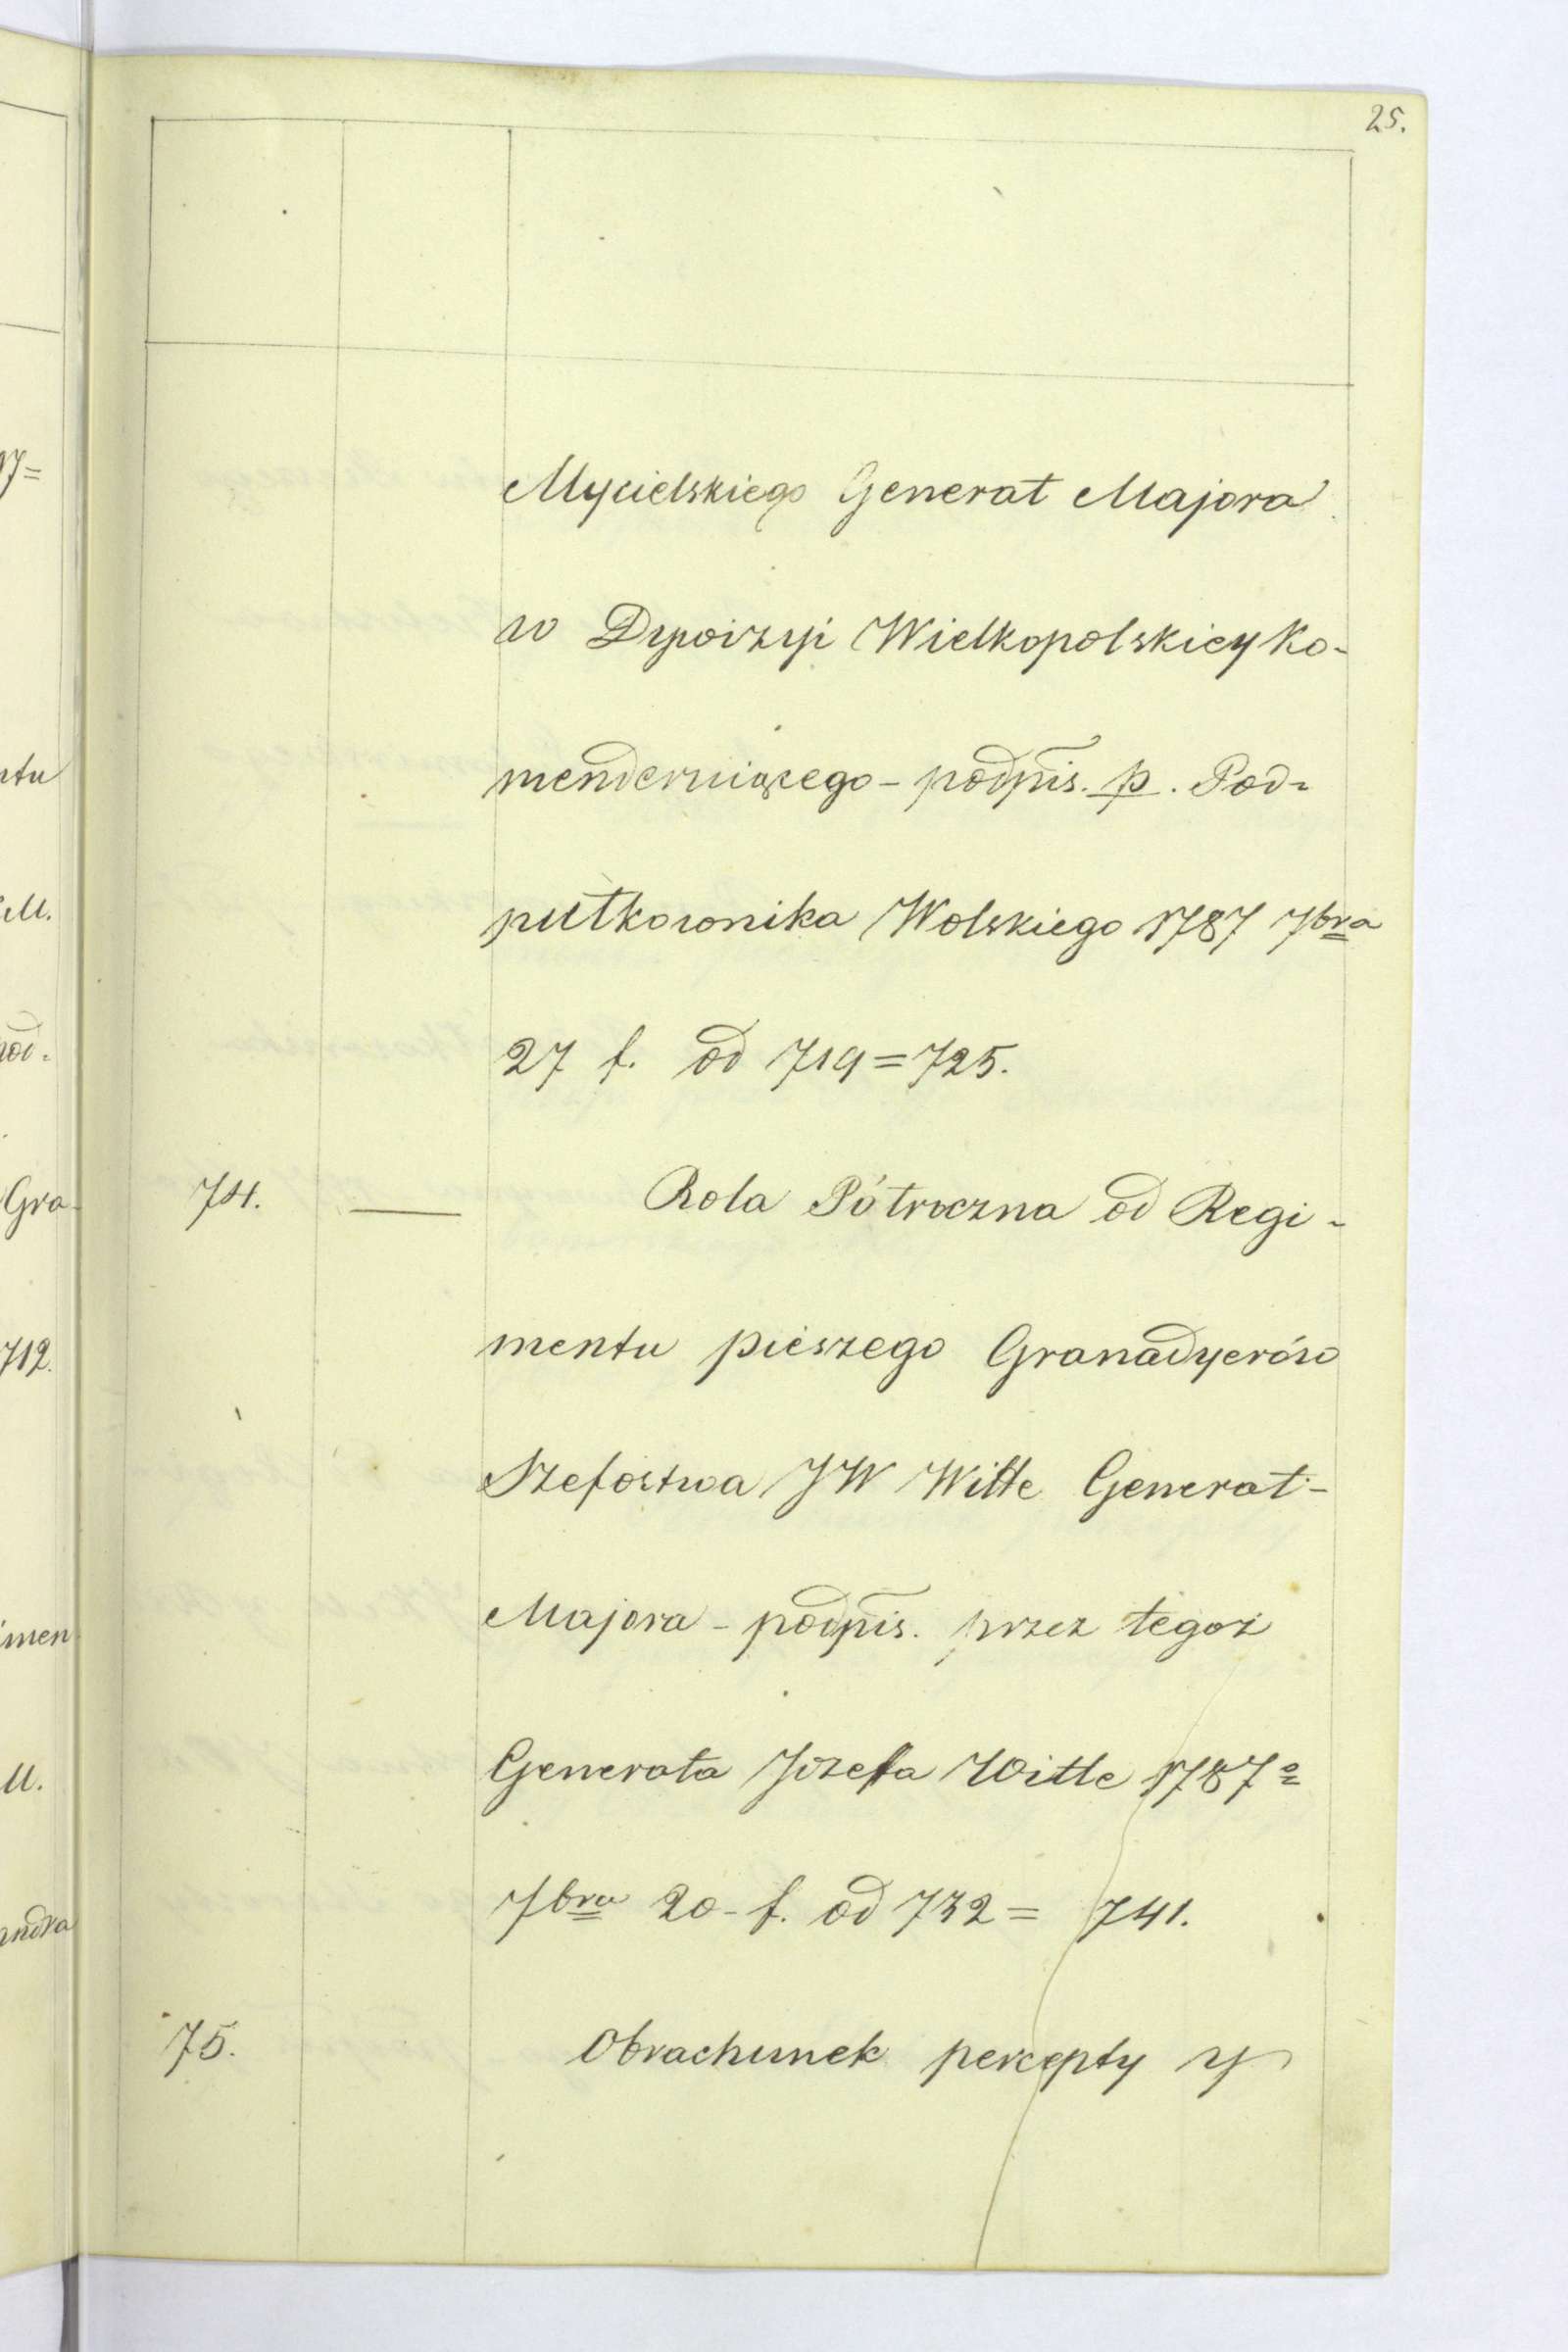 25.
Mycielskiego Generał Majora
w Dywizyi Wielkopolskiey Ko-
menderuiącego - podpis. p. Pod-
pułkownika Wolskiego 1787 7bra
27 f. od 719=725.
74. — Rola Półroczna od Regi-
mentu pieszego Granadyerów
Szefostwa JW Witte Generał-
Majora - podpis. przez tegoż
Generała Józefa Witte 1787o
7bra 20 - f. od 732 = 741.
75. Obrachunek percepty y
17=
ntu
M.
Gra-
712.
imen
M.
andra